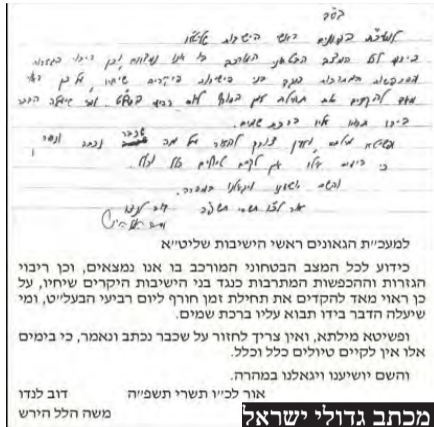 בס"ד
למעכ"ת הגאונים ראשי הישיבות שליט"א
כידוע לכל המצב הבטחוני המורכב בו אנו נמצאים, וכן ריבוי הגזרות
וההכפשות המתרבות כנגד בני הישיבות היקרים שיחיו, על כן ראוי
מאד להקדים את תחילת זמן חורף ליום רביעי הבעל"ט, ומי שיעלה הדבר
בידו תבוא עליו ברכת שמים.
ופשיטא מילתא, ואין צריך לחזור על מה שכבר נכתב ונאמר,
כי בימים אלו אין לקיים טיולים כלל וכלל.
והשם יושיענו ויגאלנו במהרה.
אור לכ"ו תשרי תשפ"ה דוב לנדו
למעכ"ת הגאונים ראשי הישיבות שליט"א
כידוע לכל המצב הבטחוני המורכב בו אנו נמצאים, וכן ריבוי
הגזרות וההכפשות המתרבות כנגד בני הישיבות היקרים שיחיו, על
כן ראוי מאד להקדים את תחילת זמן חורף ליום רביעי הבעל"ט, ומי
שיעלה הדבר בידו תבוא עליו ברכת שמים.
ופשיטא מילתא, ואין צריך לחזור על שכבר נכתב ונאמר, כי בימים
אלו אין לקיים טיולים כלל וכלל.
והשם יושיענו ויגאלנו במהרה.
אור לכ"ו תשרי תשפ"ה דוב לנדו
משה הלל הירש
מכתב גדולי ישראל